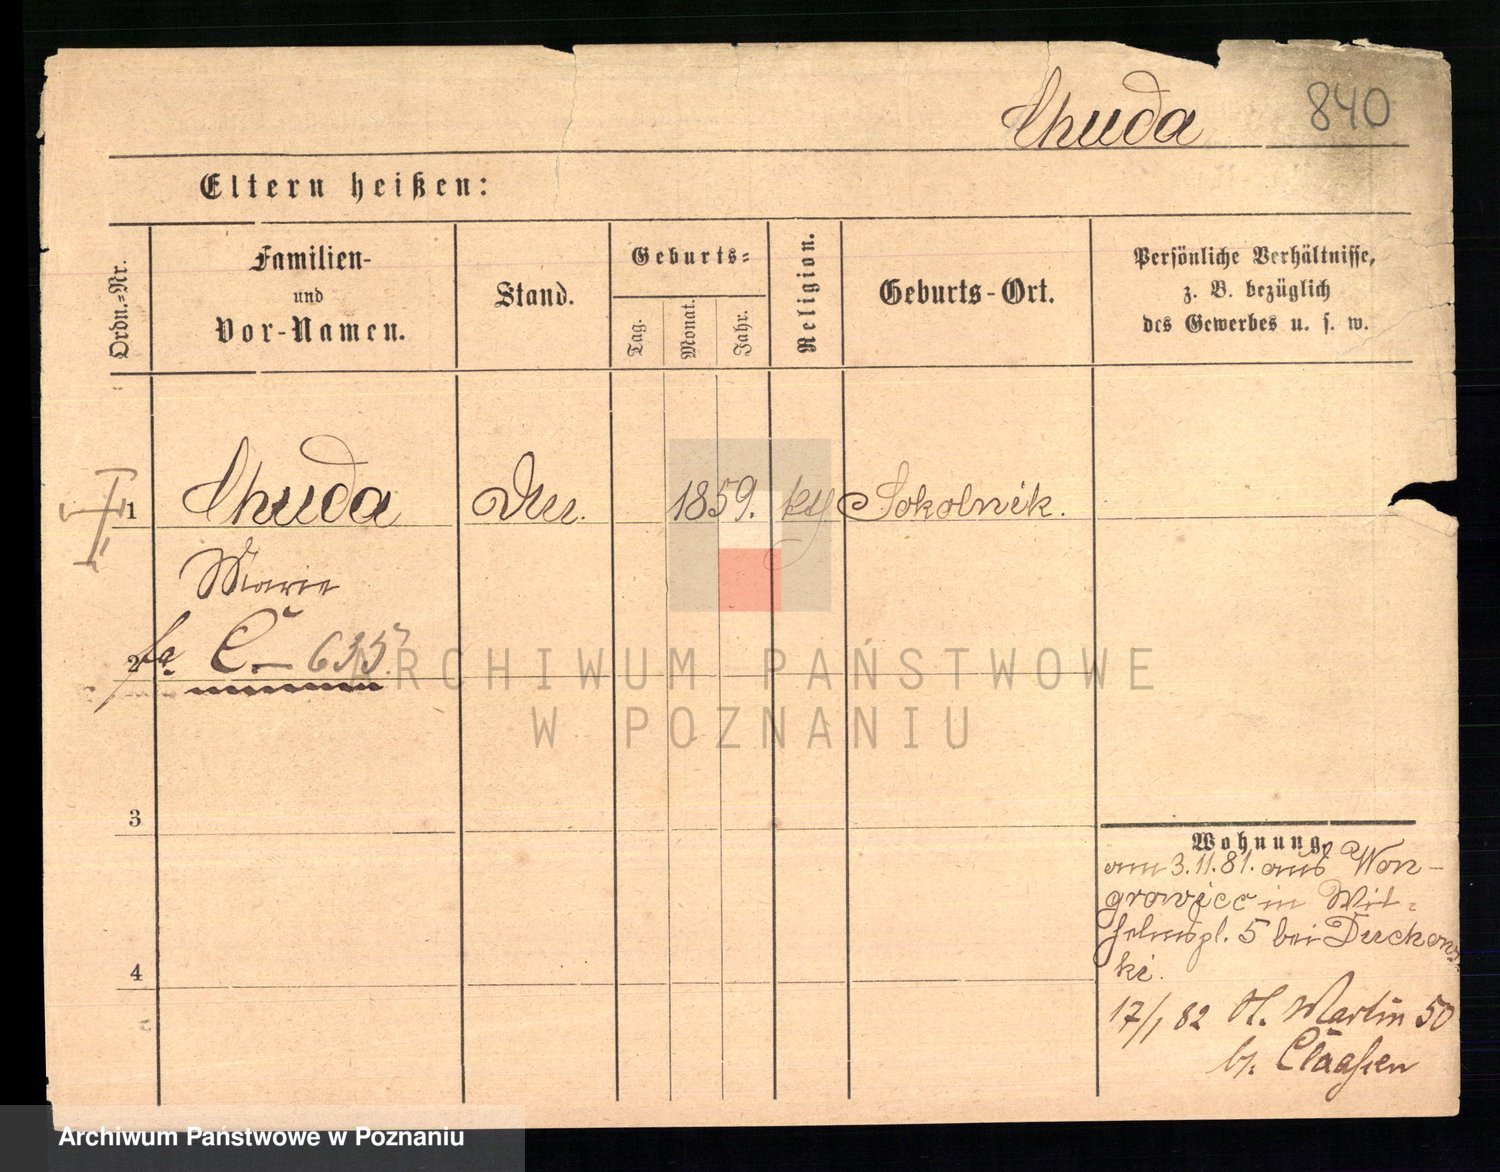 Chuda
840
Eltern heißen:
Ordn.=Nr.
Familien-
und
Vor-Namen.
Stand.
Geburts=
Tag.
Monat.
Jahr.
Religion.
Geburts-Ort.
Persönliche Verhältnisse,
z. B. bezüglich
des Gewerbes u. s. w.
1
Chuda
1859.
Sokolnik.
Marie
2
C. 635
ARCHIWUM PAŃSTWOWE
W POZNANIU
3
Wohnung.
am 3.11.81. aus Won-
growiec in Wil=
helmspl. 5 bei Durkows
ki.
4
17/1 82 St. Martin 50
b. Claaßen
Archiwum Państwowe w Poznaniu